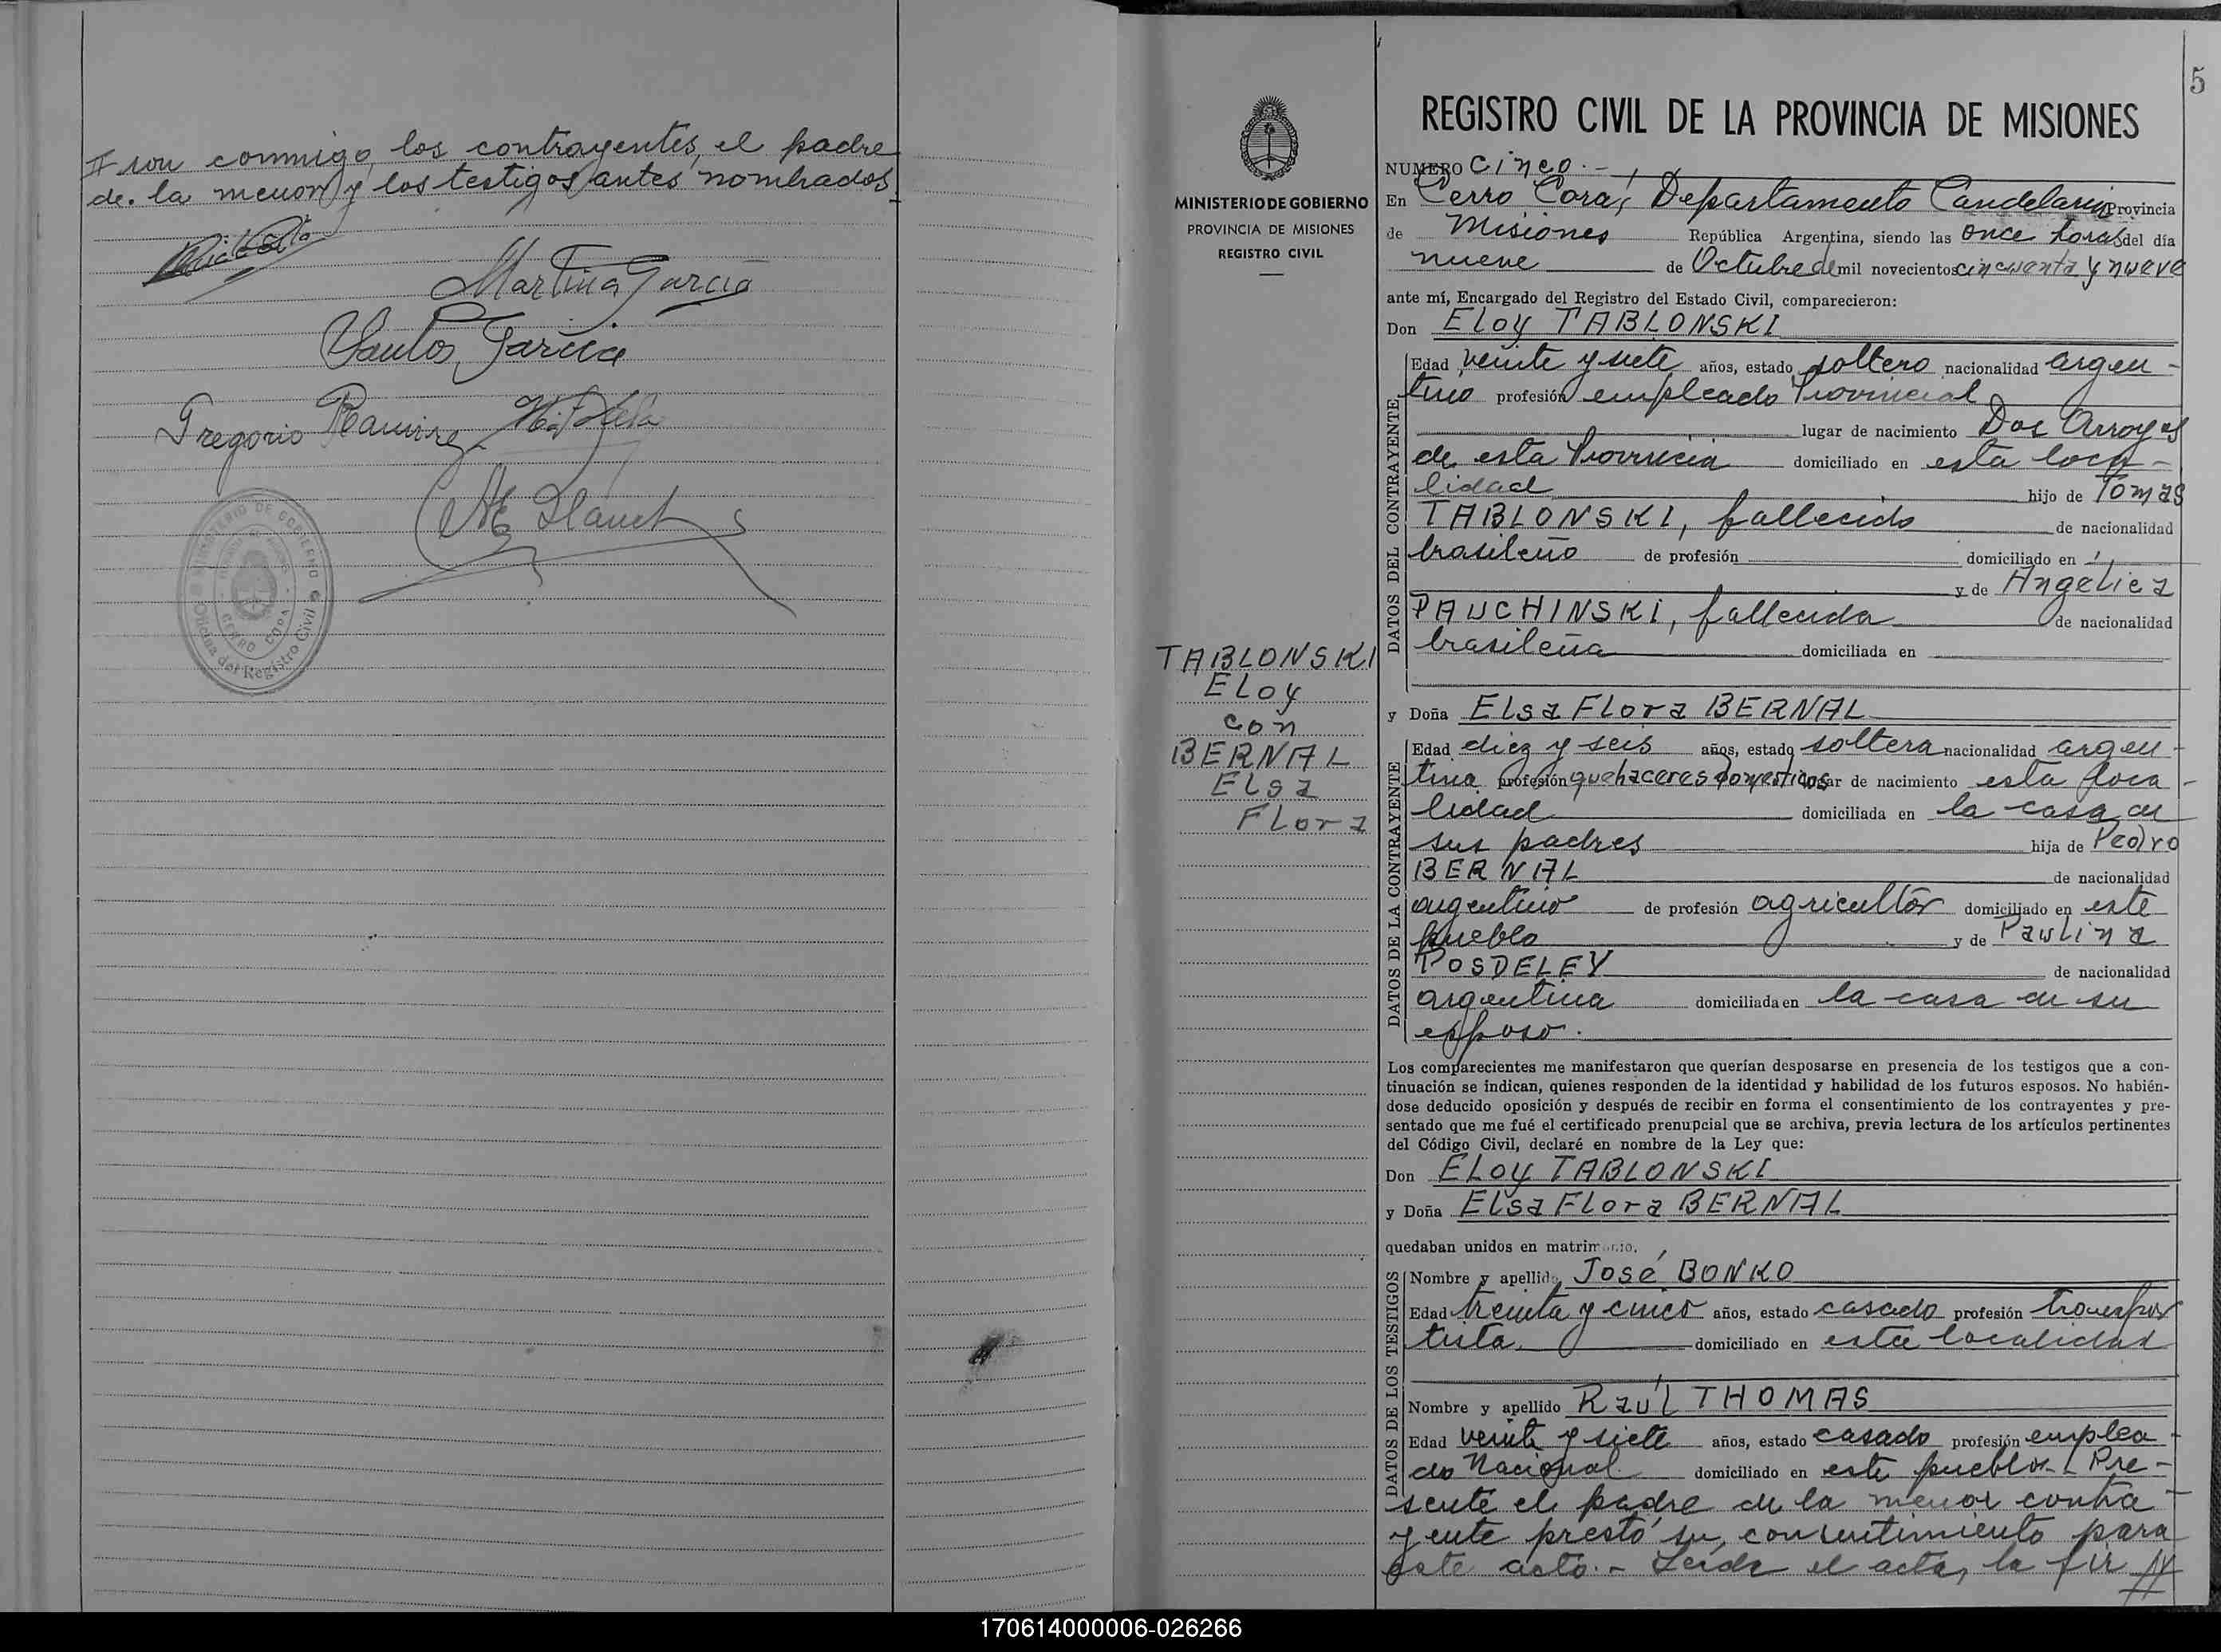 ron conmigo, los contrayentes, el padre
de la menor y los testigos antes nombrados
Martina Garcia
Santos Garcia
Gregorio Ramirez
MINISTERIO DE GOBIERNO
CERRO CORA
Oficina del Registro Civil
MINISTERIO DE GOBIERNO
PROVINCIA DE MISIONES
REGISTRO CIVIL
TABLONSKI
ELOY
con
BERNAL
ELsa
FLora
5
REGISTRO CIVIL DE LA PROVINCIA DE MISIONES
NUMERO Cinco.-
En Cerro Corá, Departamento Candelaria Provincia
de Misiones República Argentina, siendo las once horas del día
nueve de Octubre de mil novecientos cincuenta y nueve
ante mí, Encargado del Registro del Estado Civil, comparecieron:
Don ELOY TABLONSKI
Edad veinte y siete años, estado soltero nacionalidad argen-
tino profesión empleado Provincial
lugar de nacimiento Dos Arroyos
de esta Provincia domiciliado en esta loca-
lidad hijo de Tomás
TABLONSKI, fallecido de nacionalidad
brasileño de profesión domiciliado en
y de Angélica
PAUCHINSKI, fallecida de nacionalidad
brasileña domiciliada en
DATOS DEL CONTRAYENTE
y Doña ELsa FLora BERNAL
Edad diez y seis años, estado soltera nacionalidad argen-
tina profesión quehaceres domesticos lugar de nacimiento esta loca-
lidad domiciliada en la casa de
sus padres hija de Pedro
BERNAL de nacionalidad
argentino de profesión agricultor domiciliado en este
pueblo y de Paulina
POSDELEY de nacionalidad
argentina domiciliada en la casa de su
esposo.
DATOS DE LA CONTRAYENTE
Los comparecientes me manifestaron que querían desposarse en presencia de los testigos que a con-
tinuación se indican, quienes responden de la identidad y habilidad de los futuros esposos. No habién-
dose deducido oposición y después de recibir en forma el consentimiento de los contrayentes y pre-
sentado que me fué el certificado prenupcial que se archiva, previa lectura de los artículos pertinentes
del Código Civil, declaré en nombre de la Ley que:
Don ELOY TABLONSKI
y Doña ELsa FLora BERNAL
quedaban unidos en matrimonio.
Nombre y apellido José BONKO
Edad treinta y cinco años, estado casado profesión transpor
tista. domiciliado en esta localidad
Nombre y apellido Raúl THOMAS
Edad veinte y siete años, estado casado profesión emplea-
do Nacional domiciliado en este pueblo.- Pre-
DATOS DE LOS TESTIGOS
sente el padre de la menor contra-
yente prestó su consentimiento para
este acto.- Leida el acta, la fir //
170614000006-026266